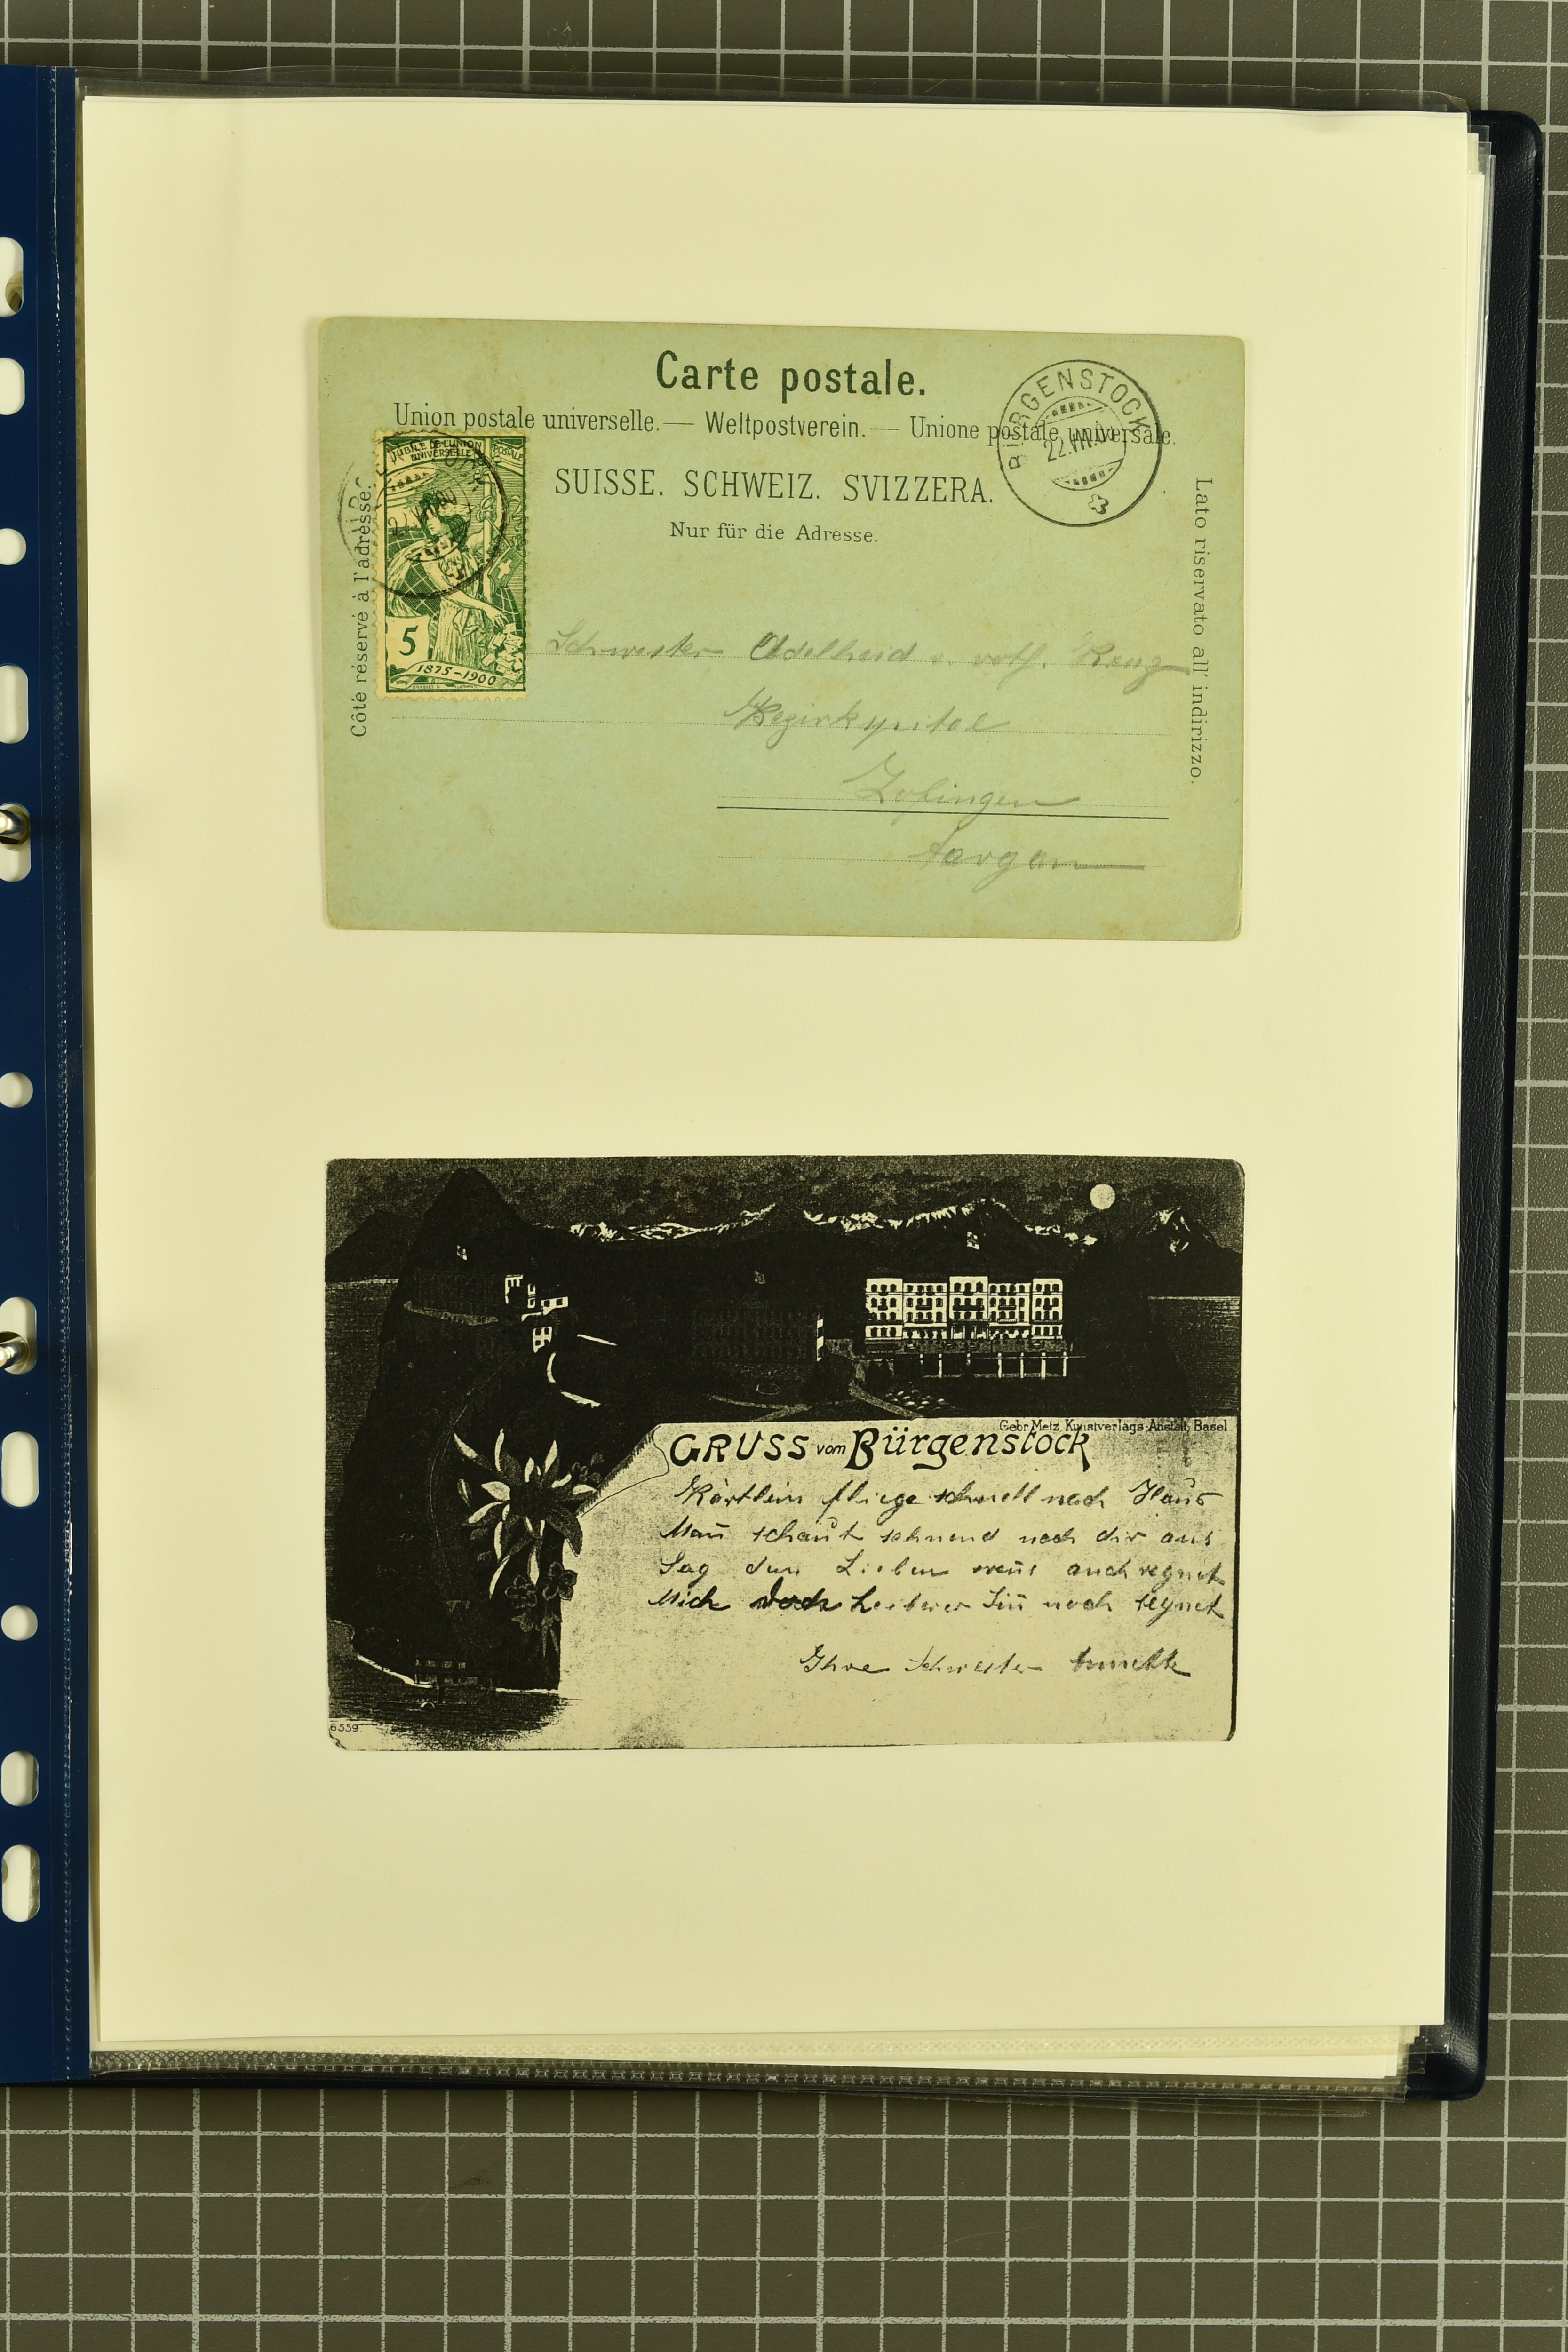 Carte postale.
Union postale universelle. — Weltpostverein. — Unione postale universale.
SUISSE. SCHWEIZ. SVIZZERA.
Nur für die Adresse.
Côté réservé à l'adresse.
Lato riservato all' indirizzo.
BÜRGENSTOCK
22.VII.00
JUBILÉ DE L'UNION POSTALE
UNIVERSELLE
5
1875-1900
Schwester Adelheid v. roth. Kreuz
Bezirkspital
Zofingen
Aargau
Gebr. Metz, Kunstverlags-Anstalt, Basel
GRUSS vom Bürgenstock
Kärtlein fliege schnell nach Haus
Man schaut sehnend nach dir aus
Sag den Lieben wens auch regnet
Mich doch heiterer Sin noch segnet
Ihre Schwester
6559